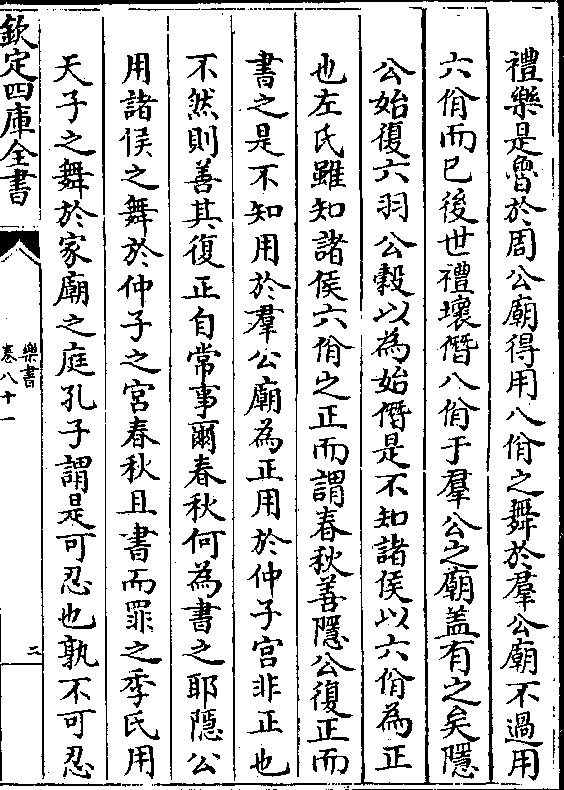 禮樂是魯於周公廟得用八佾之舞於羣公廟不過用
六佾而已後世禮壞僭八佾于羣公之廟盖有之矣隱
公始復六羽公榖以為始僭是不知諸侯以六佾為正
也左氏雖知諸侯六佾之正而謂春秋善隱公復正而
書之是不知用於羣公廟為正用於仲子宮非正也
不然則善其復正自常事爾春秋何為書之耶隱公
用諸侯之舞於仲子之宮春秋且書而罪之季氏用
天子之舞於家廟之庭孔子謂是可忍也孰不可忍
欽定四庫全書
樂書
卷八十一
三